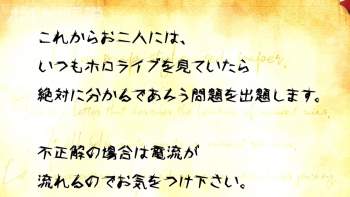 これからお二人には、
いつもホロライブを見ていたら
絶対に分かるであろう問題を出題します。
不正解の場合は電流が
流れるのでお気をつけ下さい。